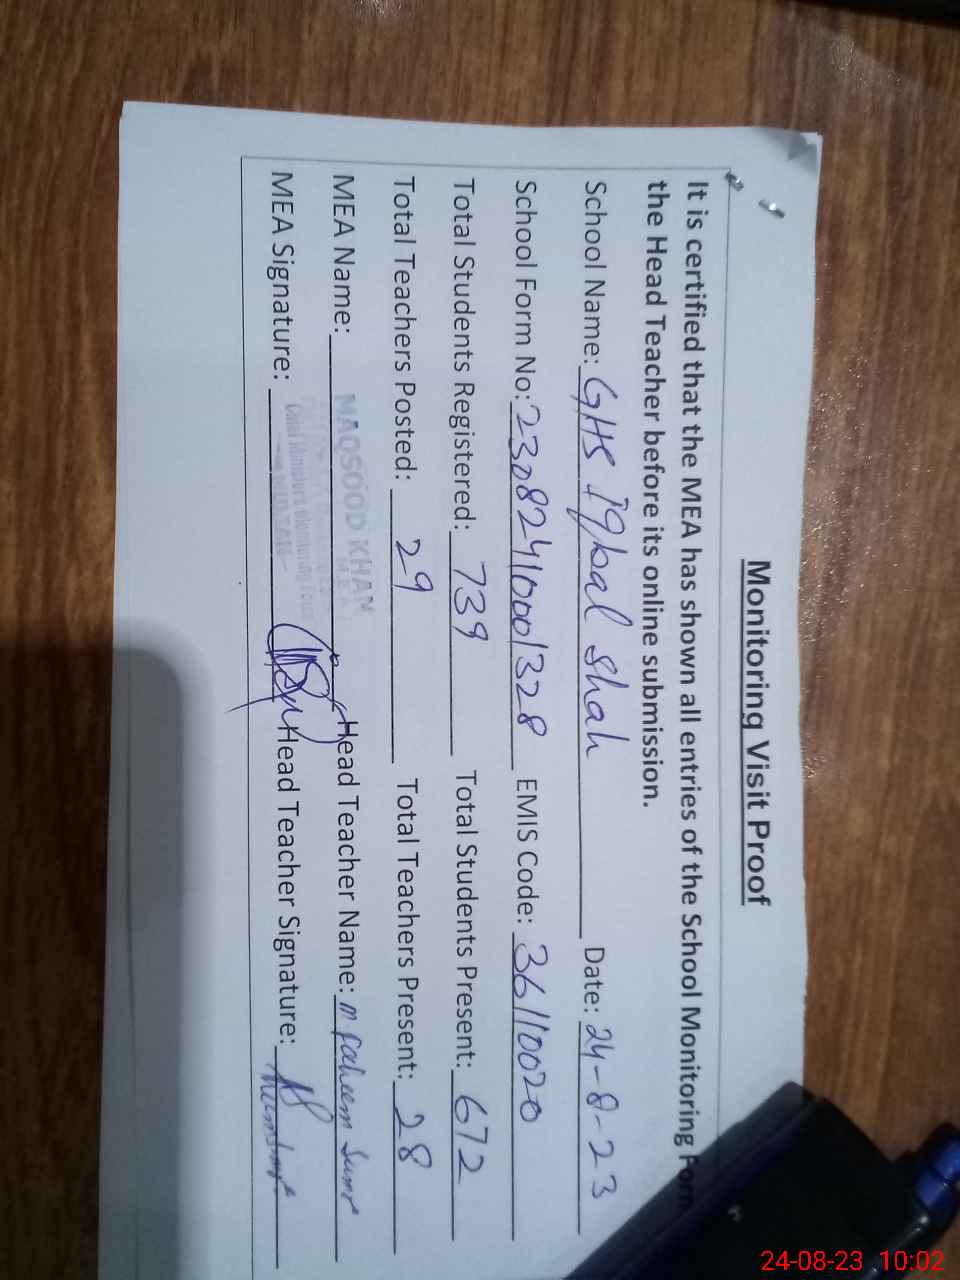 Monitoring Visit Proof
It is certified that the MEA has shown all entries of the School Monitoring Form
the Head Teacher before its online submission.
School Name: GHS Iqbal Shah Date: 24-8-23
School Form No: 23082410001328 EMIS Code: 36110020
Total Students Registered: 739 Total Students Present: 672
Total Teachers Posted: 29 Total Teachers Present: 28
MEA Name: MAQSOOD KHAN Head Teacher Name: M Faheem
M.E.A
MEA Signature: Head Teacher Signature:
Chief Ministers Monitoring Force
24-08-23 10:02